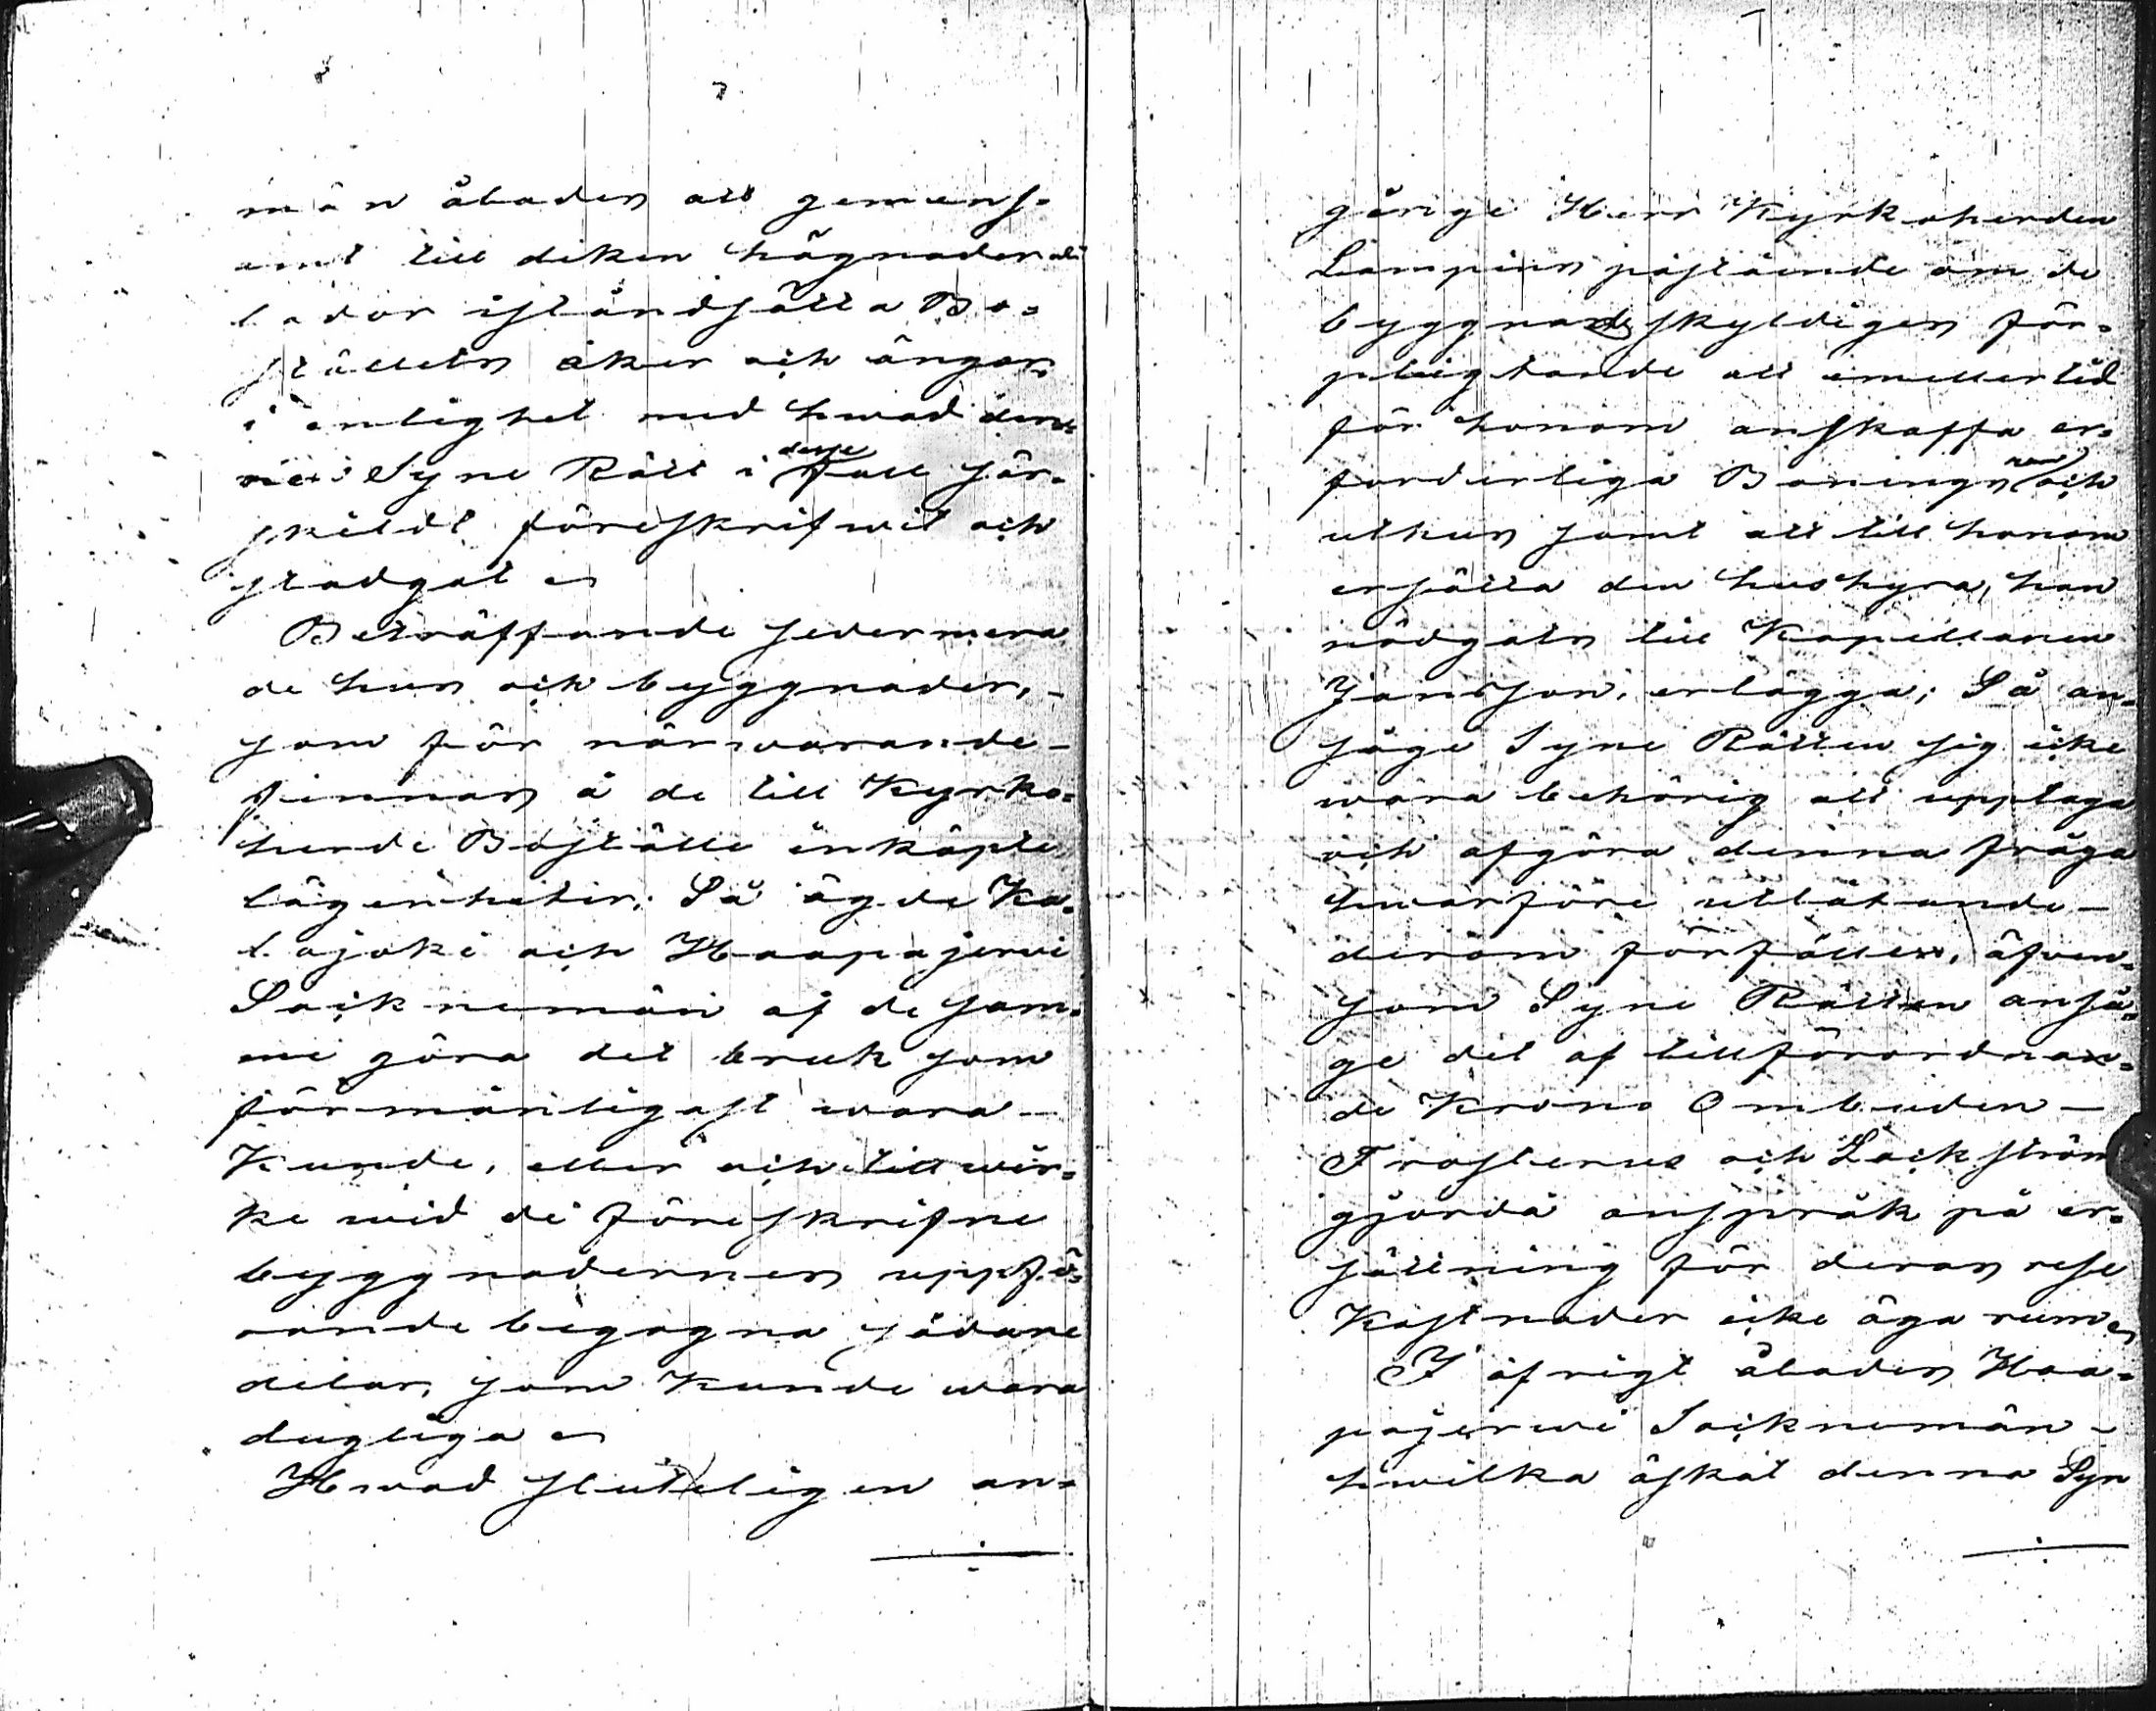 män åladen att gemens-
amt till diken hägnader och
lador iståndsätta Bo-
ställets åker och ängar
i enlighet med hwad den-
na Syne Rätt i desse fall sär-
skildt föreskrifwit och
stadgat
Beträffande sedermera
de hus och byggnader,
som för närwarande
finnas å de till Kyrko-
herde Boställe inköpte
lägenheter; Så ägde Ka-
lajoki och Haapajerwi
Socknemän af de sam-
me göra det bruk som
förmånligast wara
Kunde, eller och till wir-
ke wid de föreskrifne
byggnadernes uppfö-
rande begagna sådane
delar, som Kunde wara
duglige
Hwad sluteligen an-
gårige Herr Kyrkoherden
Lampens påstående om de
byggnadsskyldiges för-
pliigtande att emellertid
för honom anskaffa er-
forderliga Bonings rum och
uthus samt att till honom
ersätta den hushyra, han
nödgats till Kapellanen
Jansson, erlägga; Så an-
såge Syne Rätten sig icke
wara behörig att upptaga
och afgöra denna fråga
hwarföre utlåtande
derom förfäller, äfwen-
som Syne Rätten anså-
ge det af tillförordnan-
de Krono Ombuden
Frosterus och Lackström
gjorda anspråk på er-
sättning för deras rese
Kostnader icke äga rum
I öfrigt åladen Haa-
pajerwi Socknemän
hwilka äskat denna Syn